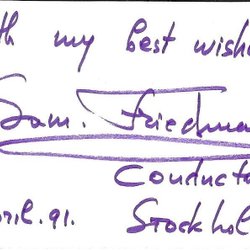 th my best wishe
Sam. Friedma
Conducto
pril. 91.
Stockhol